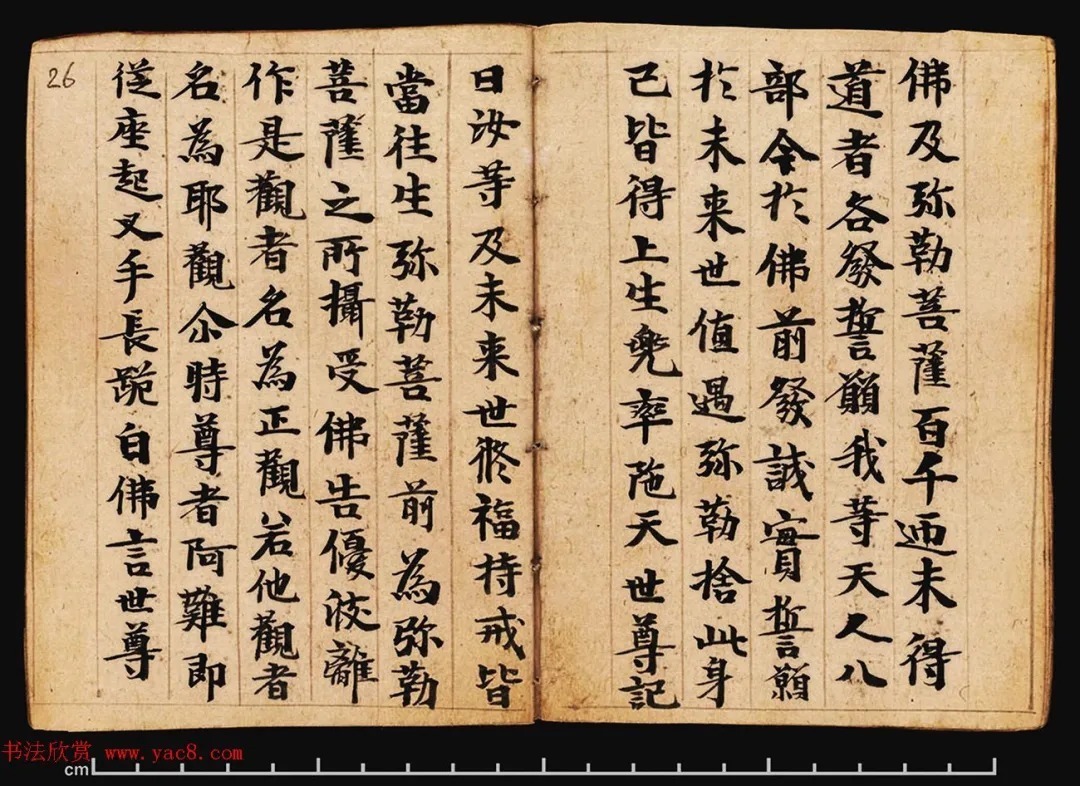 佛及弥勒菩薩百千迊未得
道者各發誓願我等天人八
部今於佛前發誠實誓願
於未来世值遇弥勒捨此身
已皆得上生兜率陁天世尊記
曰汝等及未来世修福持戒皆
當往生弥勒菩薩前為弥勒
菩薩之所攝受佛告優波離
作是觀者名為正觀若他觀者
名為耶觀尒時尊者阿難即
從座起叉手長跪白佛言世尊
26
书法欣赏 www.yac8.com
cm